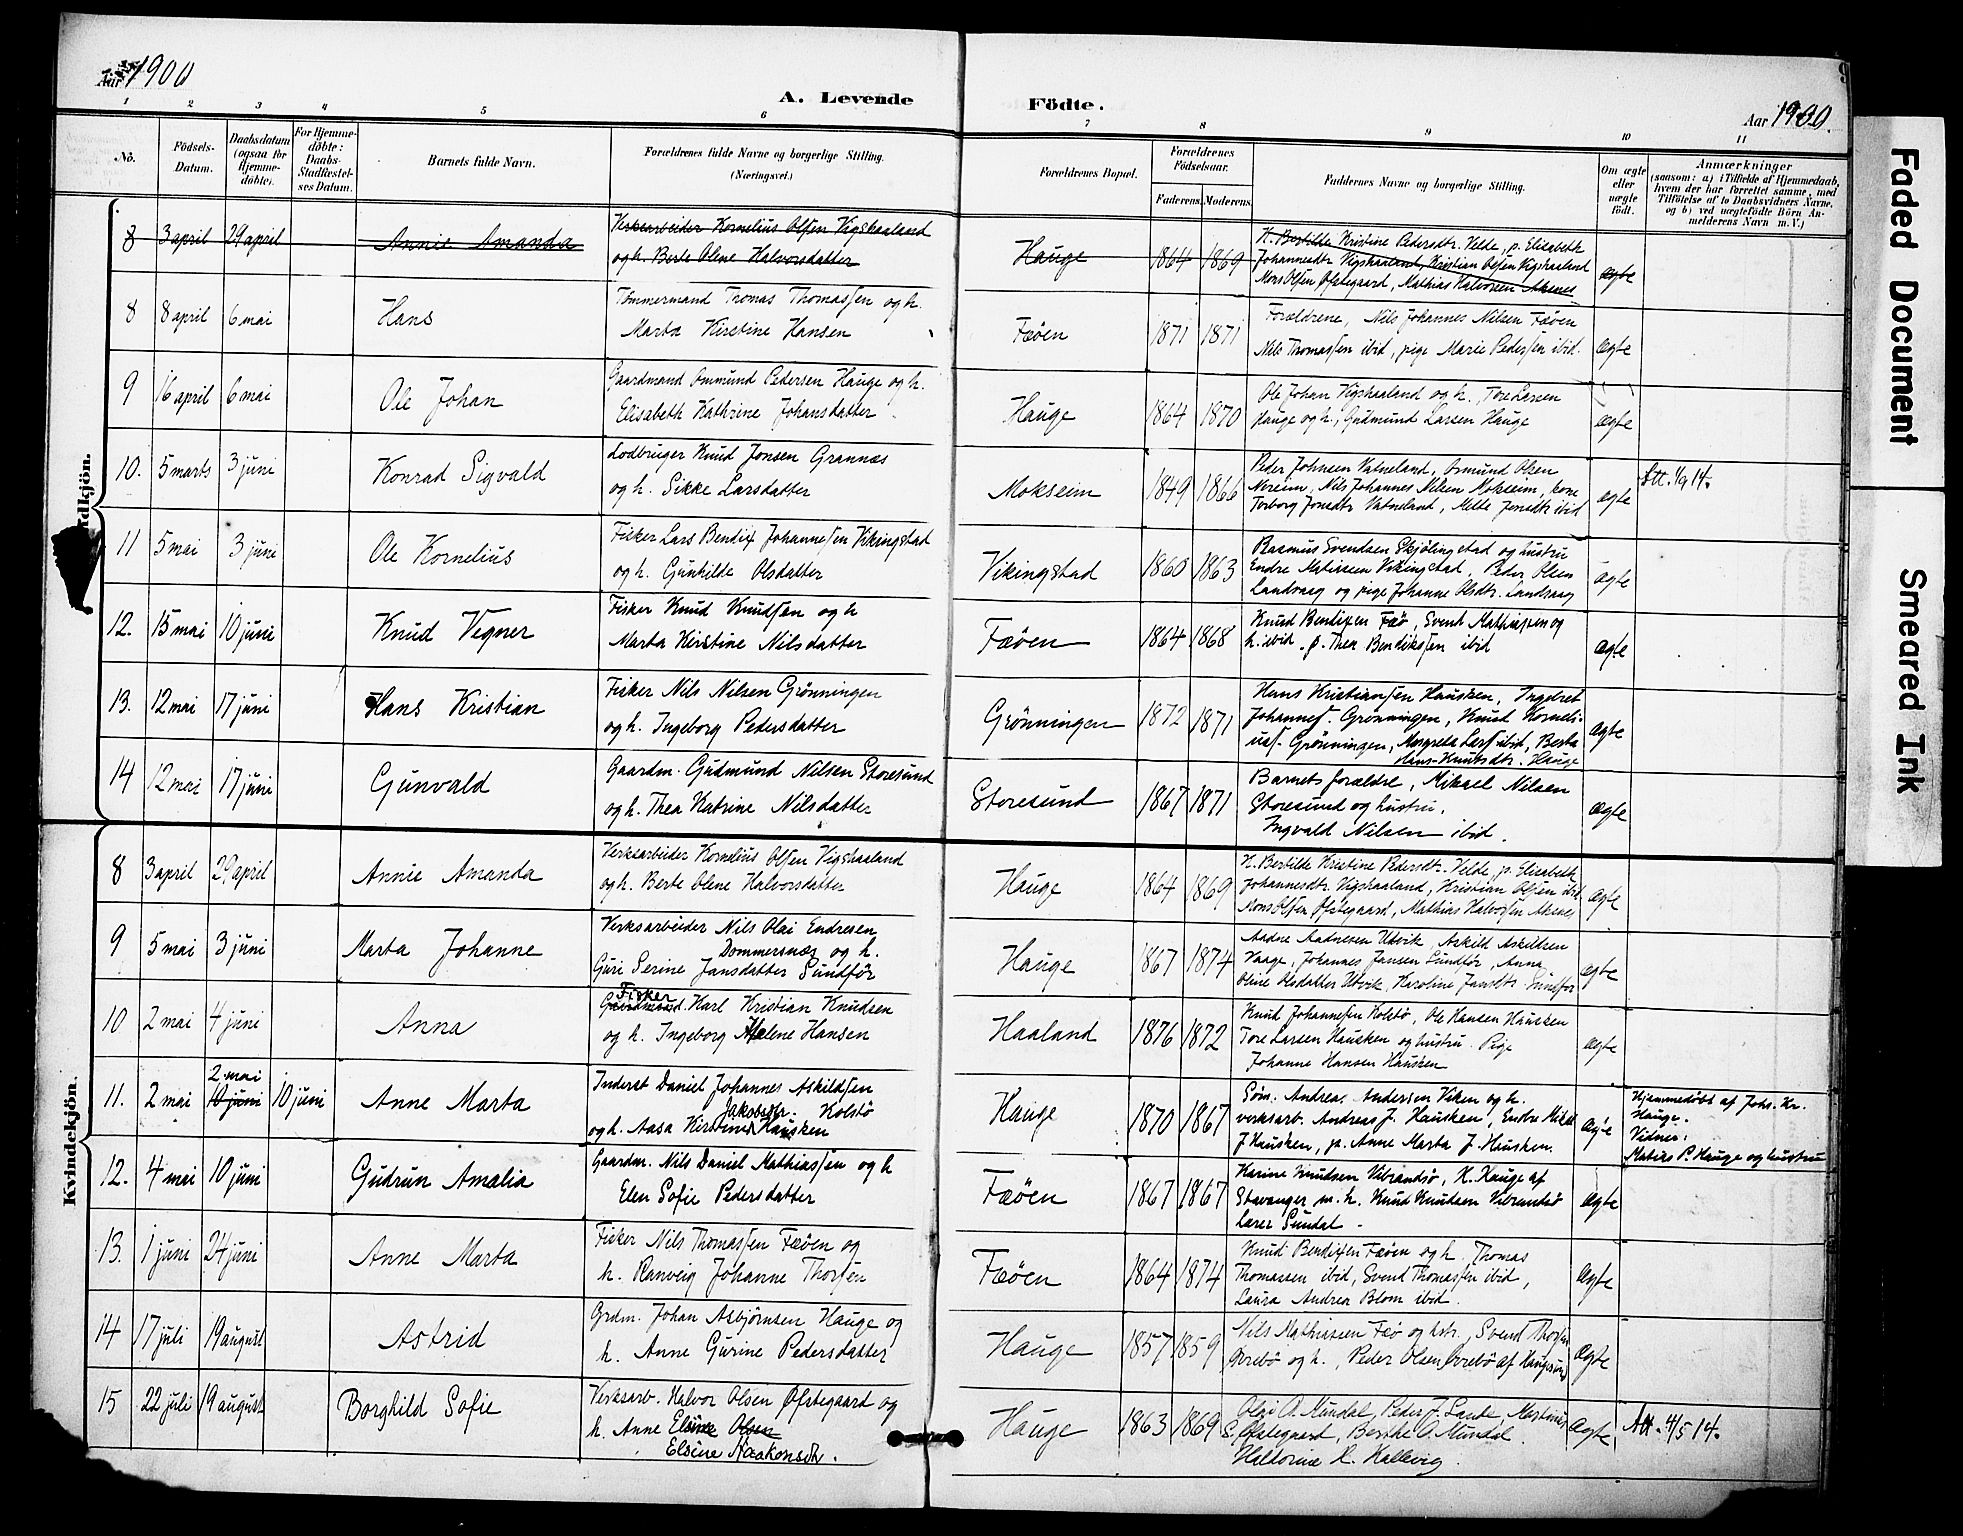 Aar 1900
A. Levende Födte.
Aar 1900.
1 2 3 4 5 6 7 8 9 10 11
No.
Födsels-Datum.
Daabsdatum (ogsaa for Hjemme-döbte).
For Hjemme-döbte: Daabs-Stadfæstel-ses Datum.
Barnets fulde Navn.
Forældrenes fulde Navne og borgerlige Stilling. (Næringsvei.)
Forældrenes Bopæl.
Forældrenes Födselsaar.
Faderens. Moderens.
Faddernes Navne og borgerlige Stilling.
Om ægte eller uægte födt.
Anmærkninger
(saasom: a) i Tilfælde af Hjemmedaab, hvem der har forrettet samme, med Tilföielse af to Daabsvidners Navne. og b) ved uægtefödte Börn An-melderens Navn m. V.)
8 3 april 29 april Annie Amanda
Verksarbeider Kornelius Olsen Vigshaaland
og h. Berte Olene Halvorsdatter
Hauge 1864 1869
H. Bertilde Kristine Pedersdtr. Velde, p. Elisabeth
Johannesdtr Vigshaaland, Kristian Olsen Vigshaaland
Mons Olsen Øfstegaard, Mathias Halvorsen Aknes
ægte
8 8 april 6 mai Hans
Tömmermand Tomas Thomassen og h.
Marta Kirstine Hansen
Fæöen 1871 1871
Forældrene, Nils Johannes Nilsen Fæöen
Nils Thomassen ibid, pige Marie Pedersen ibid.
ægte
9 16 april 6 mai Ole Johan
Gaardmand Ommund Pedersen Hauge og h.
Elisabeth Kathrine Johansdatter
Hauge 1864 1870
Ole Johan Vigshaaland og h. Tore Larsen
Hauge og h., Gudmund Larsen Hauge
ægte
10. 5 marts 3 juni Konrad Sigvald
Lodbruger Knud Jonsen Grannæs
og h. Sikke Larsdatter
Mokseim 1849 1866
Peder Johnsen Vatneland, Osmund Olsen
Noreim, Nils Johannes Nilsen Mokseim, kone
Torborg Jonsdtr Vatneland, Melte Jonsdtr ibid
ægte
Att. 1/9 14.
11 5 mai 3 juni Ole Kornelius
Fisker Lars Bendix Johannesen Vikingstad
og h. Gunhilde Olsdatter
Vikingstad 1860 1863
Rasmus Svendsen Skjölingstad og hustru
Endre Matissen Vikingstad, Peder Olsen
Landvaag og pige Johanne Olsdtr. Landvaag
ægte
12. 15 mai 10 juni Knud Vegner
Fisker Knud Knudsen og h
Marta Kirstine Nilsdatter
Fæöen 1864 1868
Knud Bendixen Fæö, Svend Mathiassen og
h. ibid. p. Thea Bendiksen ibid
ægte
13. 12 mai 17 juni Hans Kristian
Fisker Nils Nilsen Grönningen
og h. Ingeborg Pedersdatter
Grönningen 1872 1871
Hans Kristiansen Hausken, Ingebret
Johannes. Grönningen, Knud Korneli-
uss. Grönningen, Margreta Lars. ibid, Berta
Hans-Knutsdtr. Hauge
ægte
14 12 mai 17 juni Gunvald
Gaardm. Gudmund Nilsen Storesund
og h. Thea Katrine Nilsdatter
Storesund 1867 1871
Barnets forældre, Mikael Nilsen
Storesund og hustru.
Ingvald Nilsen ibid.
ægte
Kvindekjön.
8 3 april 29 april Annie Amanda
Verksarbeider Kornelius Olsen Vigshaaland
og h. Berte Olene Halvorsdatter
Hauge 1864 1869
H. Bertilde Kristine Pedersdtr. Velde, p. Elisabeth
Johannesdtr. Vigshaaland, Kristian Olsen ibid
Mons Olsen Øfstegaard, Mathias Halvorsen Aknes
ægte
9 5 mai 3 juni Marta Johanne
Verksarbeider Nils Olai Endresen
Dommersnæs og h.
Guri Serine Jansdatter Sundför
Hauge 1867 1874
Aadne Aadnesen Utvik, Askild Askildsen
Vaage, Johannes Jansen Sundför, Anna
Oline Olsdatter Utvik, Karoline Jansdtr. Sundför
ægte
10 2 mai 4 juni Anna
Fisker
Gaardmand Karl Kristian Knudsen
og h. Ingeborg Malene Hansen
Haaland 1876 1872
Knud Johannesen Kolstö, Ole Hansen Hausken
Tore Larsen Hausken og hustru. Pige
Johanne Hansen Hausken
ægte
11. 2 mai 2 mai 10 juni 10 juni Anne Marta
Inderst Daniel Johannes Askildsen
Jakobsdtr. Kolstö
og h. Aasa Kirstine Hausken
Hauge 1870 1867
Söm. Andreas Andersen Viken og h.
verksarb. Andreas J. Hausken, Endre Mikal
J Hausken, p. Anne Marta J. Hausken.
ægte
Hjemmedöbt af Johs. Kr.
Hauge.
Vidner:
Matias P. Hauge og hustru
12. 4 mai 10 juni Gudrun Amalia
Gaardm. Nils Daniel Mathiassen og h
Elen Sofie Pedersdatter
Fæöen 1867 1867
Karine Knudsen Vibrandsö, K. Hauge af
Stavanger m. h. Knud Knudsen Vibrandsö
Lærer Sundal.
ægte
13. 1 juni 24 juni Anne Marta
Fisker Nils Thomassen Fæöen og
h. Ranveig Johanne Thorsen
Fæöen 1864 1874
Knud Bendixen Fæöen og h. Thomas
Thomassen ibid, Svend Thomassen ibid,
Laura Andrea Blom ibid.
ægte
14 17 juli 19 august Astrid
Grdm. Johan Asbjörnsen Hauge og
h. Anne Gurine Pedersdatter
Hauge 1857 1859
Nils Mathiassen Fæö og hstr., Svend Thorsen
Övrebö og h., Peder Olsen Övrebö af Haugesund
ægte
15 22 juli 19 august Borghild Sofie
Verksarb. Halvor Olsen Øfstegaard og
h. Anne Elsine Olsen
Elsine Haakonsdtr.
Hauge 1863 1869
Olai O. Mundal, Peder J. Lande, Martinius
S. Øfstegaard, Berthe O. Mundal.
Haldorine R. Hallevig.
ægte
Att. 4/5 14.
Faded Document
Smeared Ink